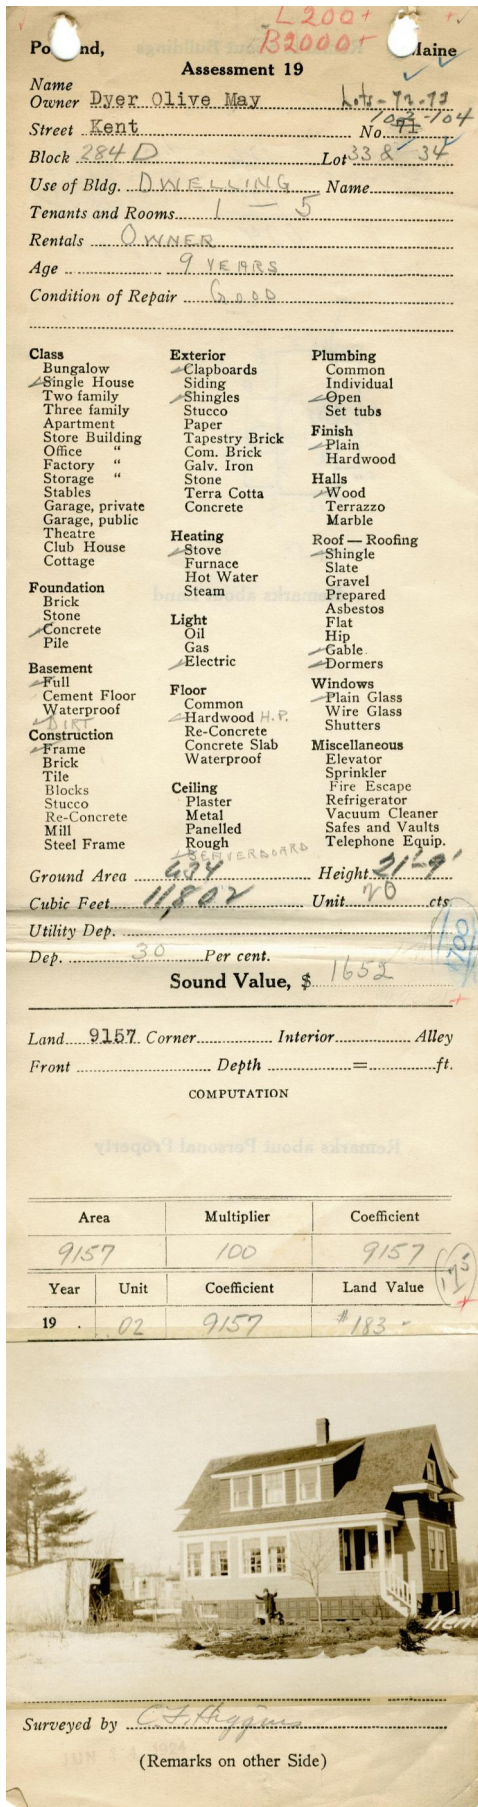 L 200+
B 2000+
Po nd, Maine
Assessment 19
Name
Owner Dyer Olive May Lots - 72-73
102-104
Street Kent No. 71
Block 284 D Lot 33 & 34
Use of Bldg. DWELLING Name
Tenants and Rooms 1 — 5
Rentals OWNER
Age 9 YEARS
Condition of Repair GOOD
Class
Bungalow
Single House
Two family
Three family
Apartment
Store Building
Office "
Factory "
Storage "
Stables
Garage, private
Garage, public
Theatre
Club House
Cottage
Foundation
Brick
Stone
Concrete
Pile
Basement
Full
Cement Floor
Waterproof
DIRT
Construction
Frame
Brick
Tile
Blocks
Stucco
Re-Concrete
Mill
Steel Frame
Exterior
Clapboards
Siding
Shingles
Stucco
Paper
Tapestry Brick
Com. Brick
Galv. Iron
Stone
Terra Cotta
Concrete
Heating
Stove
Furnace
Hot Water
Steam
Light
Oil
Gas
Electric
Floor
Common
Hardwood H.P.
Re-Concrete
Concrete Slab
Waterproof
Ceiling
Plaster
Metal
Panelled
Rough
BEAVERBOARD
Plumbing
Common
Individual
Open
Set tubs
Finish
Plain
Hardwood
Halls
Wood
Terrazzo
Marble
Roof — Roofing
Shingle
Slate
Gravel
Prepared
Asbestos
Flat
Hip
Gable
Dormers
Windows
Plain Glass
Wire Glass
Shutters
Miscellaneous
Elevator
Sprinkler
Fire Escape
Refrigerator
Vacuum Cleaner
Safes and Vaults
Telephone Equip.
Ground Area 634 Height 21'-9'
Cubic Feet 11,802 Unit 20 cts.
Utility Dep.
1700
Dep. 30 Per cent.
Sound Value, $ 1652
Land 9157 Corner Interior Alley
Front Depth = ft.
COMPUTATION
Area Multiplier Coefficient
9157 100 9157
175
Year Unit Coefficient Land Value
19 . .02 9157 $183 -
Kent
Surveyed by C. F. Higgins
(Remarks on other Side)